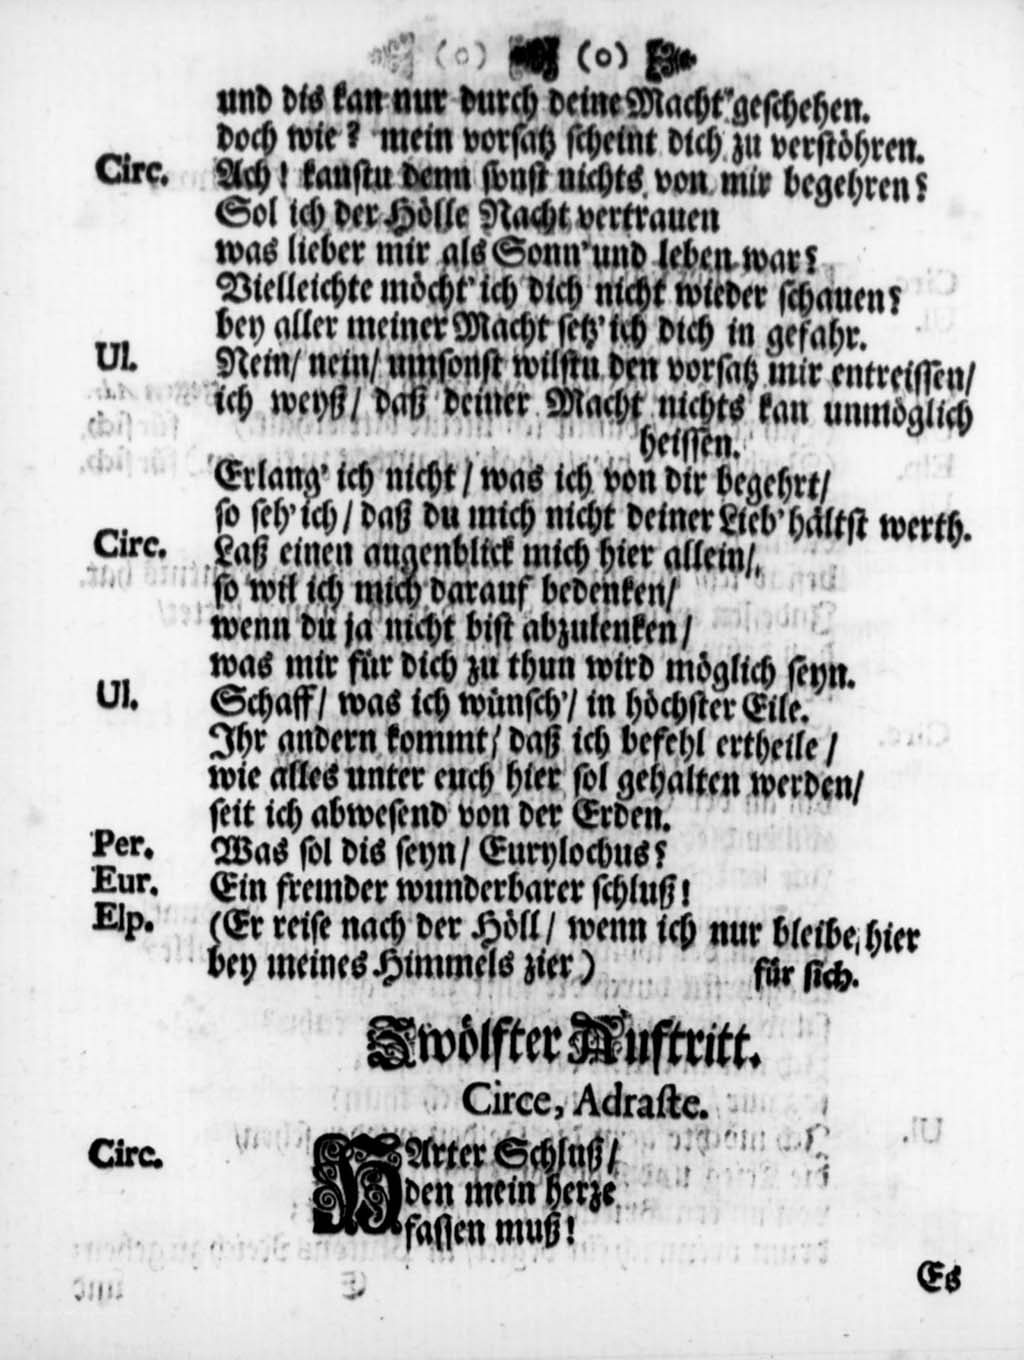 (o) (o)
und dis kan nur durch deine Macht geschehen.
doch wie? mein vorsatz scheint dich zu verstöhren.
Circ. Ach! kanstu denn sonst nichts von mir begehren?
Sol ich der Hölle Nacht vertrauen
was lieber mir als Sonn' und leben war?
Vielleichte möcht' ich dich nicht wieder schauen?
bey aller meiner Macht setz' ich dich in gefahr.
Ul. Nein/ nein/ umsonst wilstu den vorsatz mir entreissen/
ich weyß/ daß deiner Macht nichts kan unmöglich
heissen.
Erlang' ich nicht/ was ich von dir begehrt/
so seh' ich/ daß du mich nicht deiner Lieb' hältst werth.
Circ. Laß einen augenblick mich hier allein/
so wil ich mich darauf bedenken/
wenn du ja nicht bist abzulenken/
was mir für dich zu thun wird möglich seyn.
Ul. Schaff/ was ich wünsch'/ in höchster Eile.
Ihr andern kommt/ daß ich befehl ertheile/
wie alles unter euch hier sol gehalten werden/
seit ich abwesend von der Erden.
Per. Was sol dis seyn/ Eurylochus?
Eur. Ein fremder wunderbarer schluß!
Elp. (Er reise nach der Höll/ wenn ich nur bleibe hier
bey meines Himmels zier) für sich.
Zwölfter Auftritt.
Circe, Adraste.
Circ. HArter Schluß/
den mein herze
fassen muß!
Es